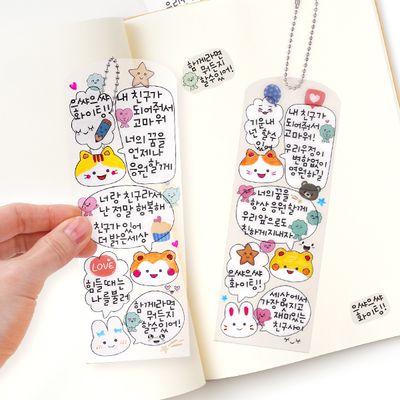 우리의
함께라면
뭐든지
할수있어!
으쌰으쌰
화이팅!
내 친구가
되어줘서
고마워
너의 꿈을
언제나
응원할게
너랑 친구라서
난 정말 행복해
친구가 있어
더 밝은세상
LOVE
힘들 때는
나를불러
함께라면
뭐든지
할수있어!
기운내
넌 할수
있어
내 친구가
되어줘서
고마워!
우리우정이
변함없이
영원하길
너의꿈을
항상 응원할게
우리앞으로도
친하게지내자
으쌰으쌰
화이팅!
세상에서
가장 멋지고
재미있는
친구사이
으쌰으쌰
화이팅!